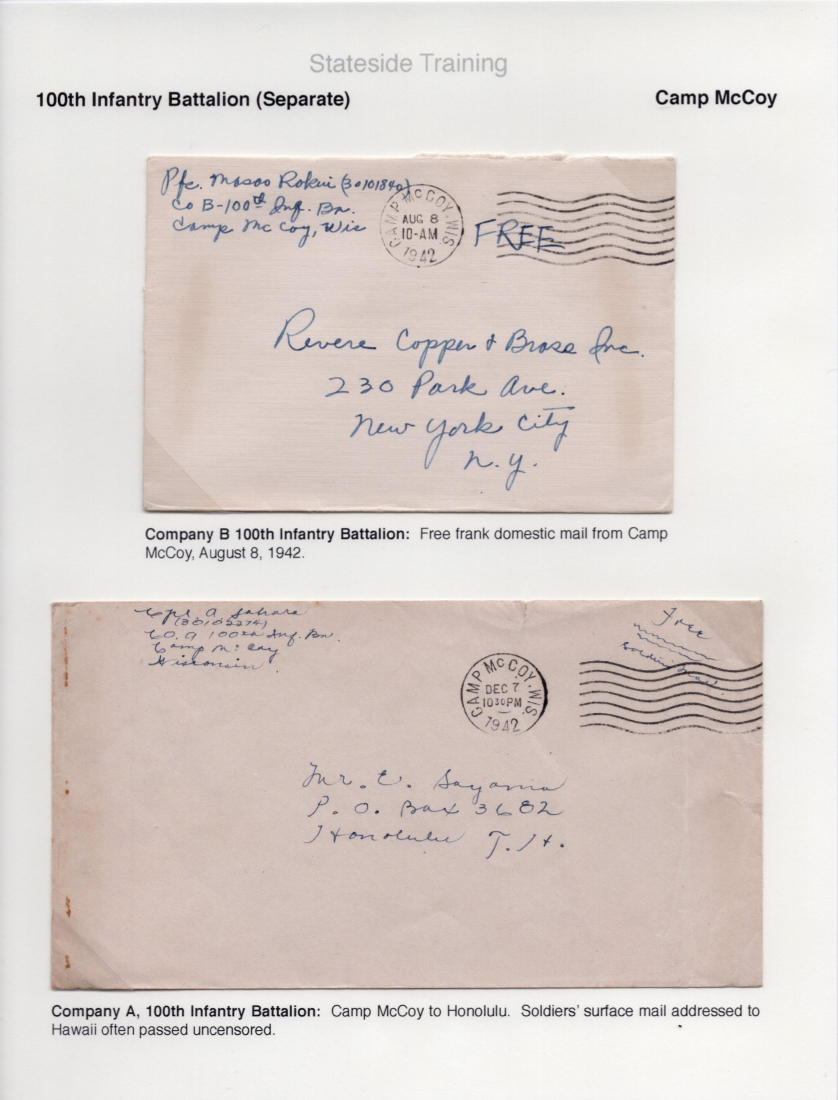 Stateside Training
100th Infantry Battalion (Separate)
Camp McCoy
Pfc. Masao Rokui (30101840)
Co B-100th Inf. Bn.
Camp McCoy, Wis
CAMP McCOY, WIS.
AUG 8
10-AM
1942
FREE
Revere Copper & Brass Inc.
230 Park Ave.
New York City
N.Y.
Company B 100th Infantry Battalion: Free frank domestic mail from Camp
McCoy, August 8, 1942.
Cpl. A Sahara
(30102274)
Co. A 100th Inf. Bn.
Camp McCoy
Wisconsin
Free
Soldier Mail.
CAMP McCOY, WIS.
DEC 7
1030PM
1942
Mr. E. Sayama
P. O. Box 3682
Honolulu T. H.
Company A, 100th Infantry Battalion: Camp McCoy to Honolulu. Soldiers' surface mail addressed to
Hawaii often passed uncensored.